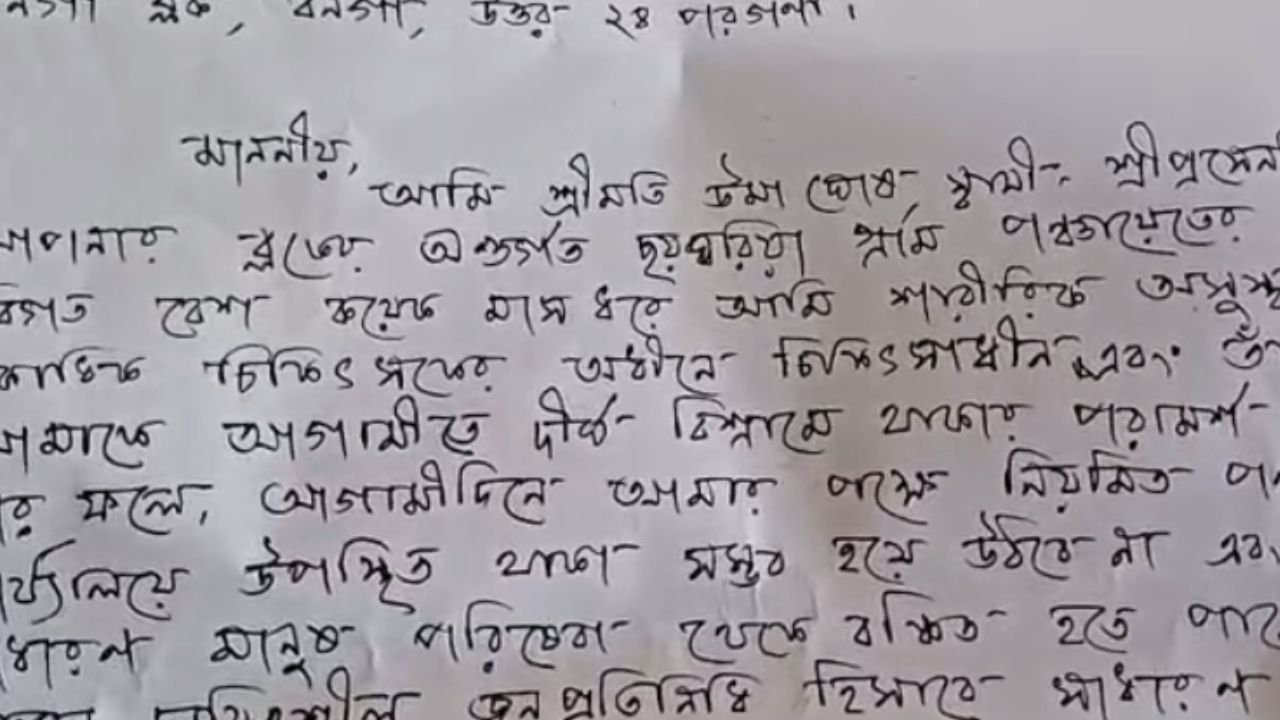 ব্লক, বনগাঁ, উত্তর ২৪ পরগণা।
মাননীয়,
আমি শ্রীমতি উমা ঘোষ, স্বামী- শ্রীপ্রসেন
আপনার ব্লকের অন্তর্গত ছয়ঘরিয়া গ্রাম পঞ্চায়েতের
বিগত বেশ কয়েক মাস ধরে আমি শারীরিক অসুস্থ
একাধিক চিকিৎসকের অধীনে চিকিৎসাধীন এবং
আমাকে আগামীতে দীর্ঘ বিশ্রামে থাকার পরামর্শ
ফলে, আগামীদিনে আমার পক্ষে নিয়মিত
উপস্থিত থাকা সম্ভব হয়ে উঠবে না
মানুষ পরিষেবা থেকে বঞ্চিত হতে
জনপ্রতিনিধি হিসাবে সাধারণ